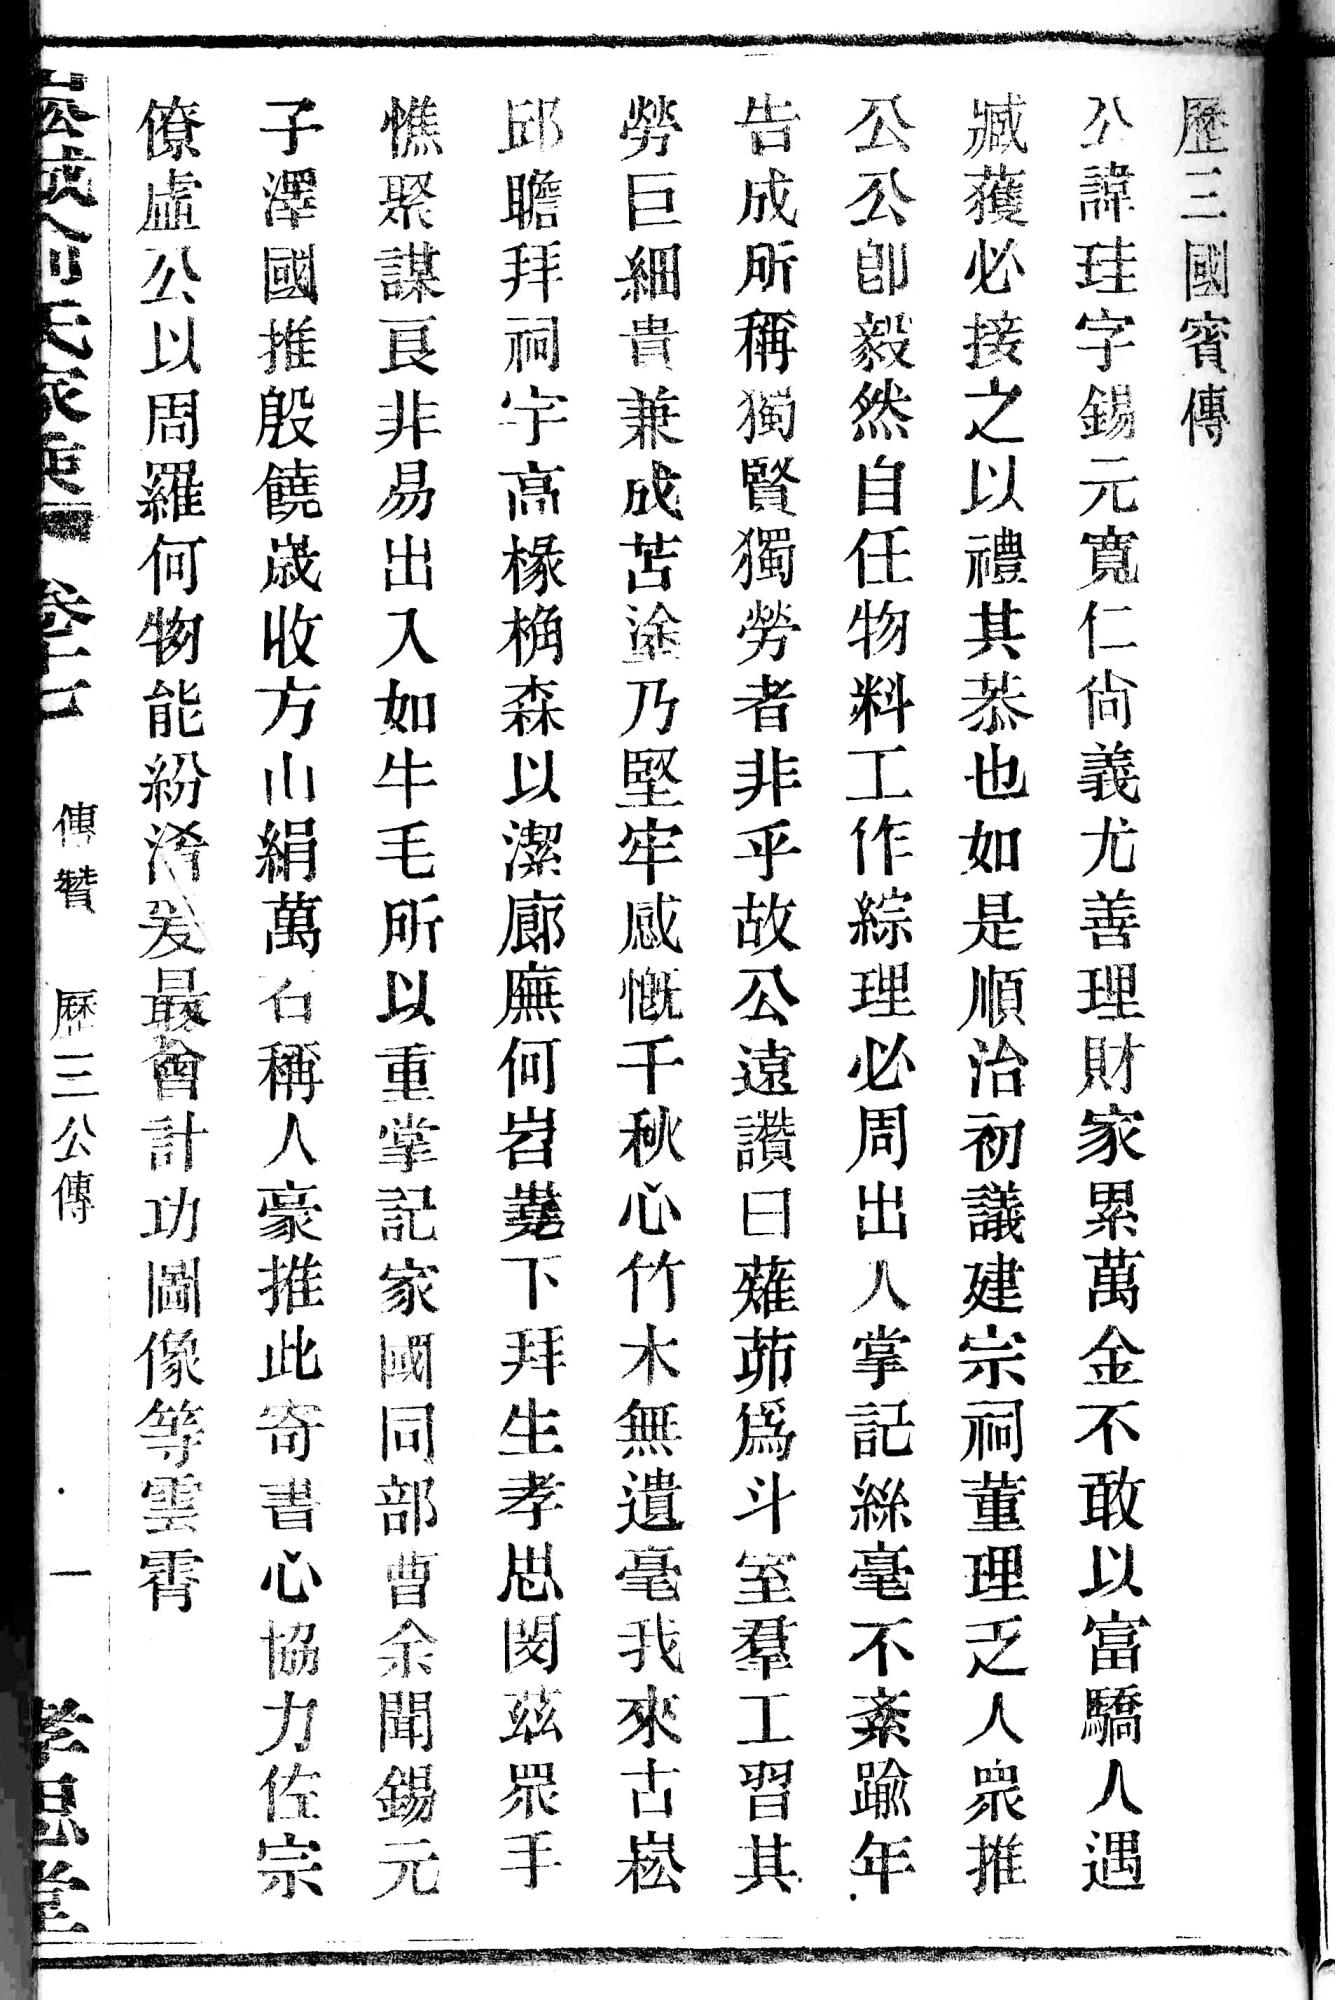 歷三國賓傳
公諱珪字錫元寬仁尙義尤善理財家累萬金不敢以富驕人遇
臧獲必接之以禮其恭也如是順治初議建宗祠董理乏人衆推
公公卽毅然自任物料工作綜理必周出入掌記絲毫不紊踰年
告成所稱獨賢獨勞者非乎故公遠讚曰薙茆爲斗室羣工習其
勞巨細貴兼成苦塗乃堅牢感慨千秋心竹木無遺毫我來古崧
邱瞻拜祠宇高椽桷森以潔廊廡何岧嶤下拜生孝思閔茲眾手
憔聚謀良非易出入如牛毛所以重掌記家國同部曹余聞錫元
子澤國推殷饒歲收方山絹萬石稱人豪推此寄書心協力佐宗
僚虛公以周羅何物能紛淆爰最會計功圖像等雲霄
崧城俞氏家乘 卷十七 傳贊 歷三公傳 一 孝思堂